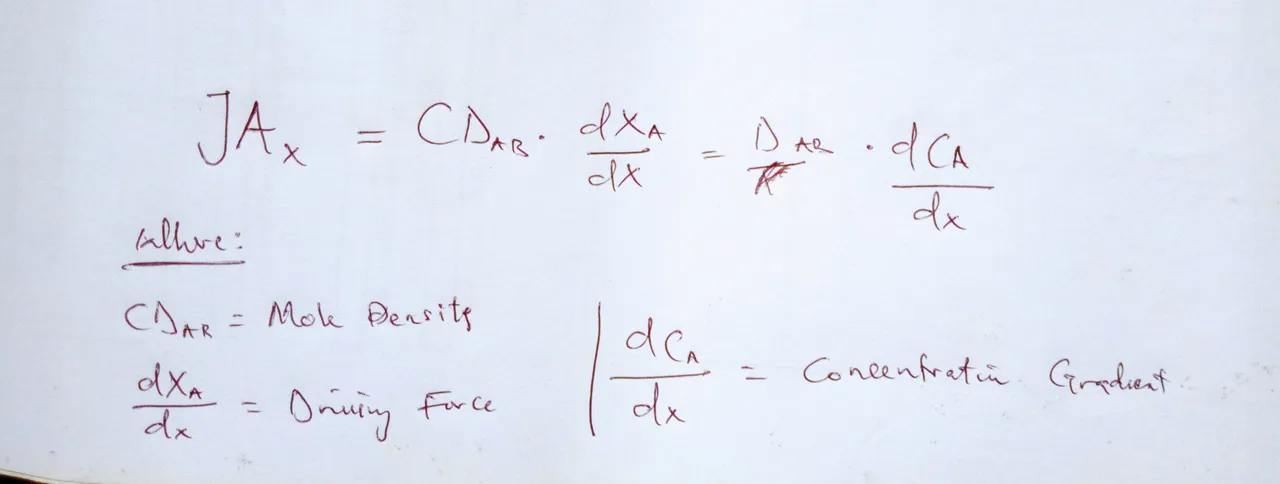 JA_x = CD_AB · dX_A/dx = D_AB · dC_A/dx
where:
CD_AB = Mole Density
dX_A/dx = Driving Force
dC_A/dx = Concentration Gradient